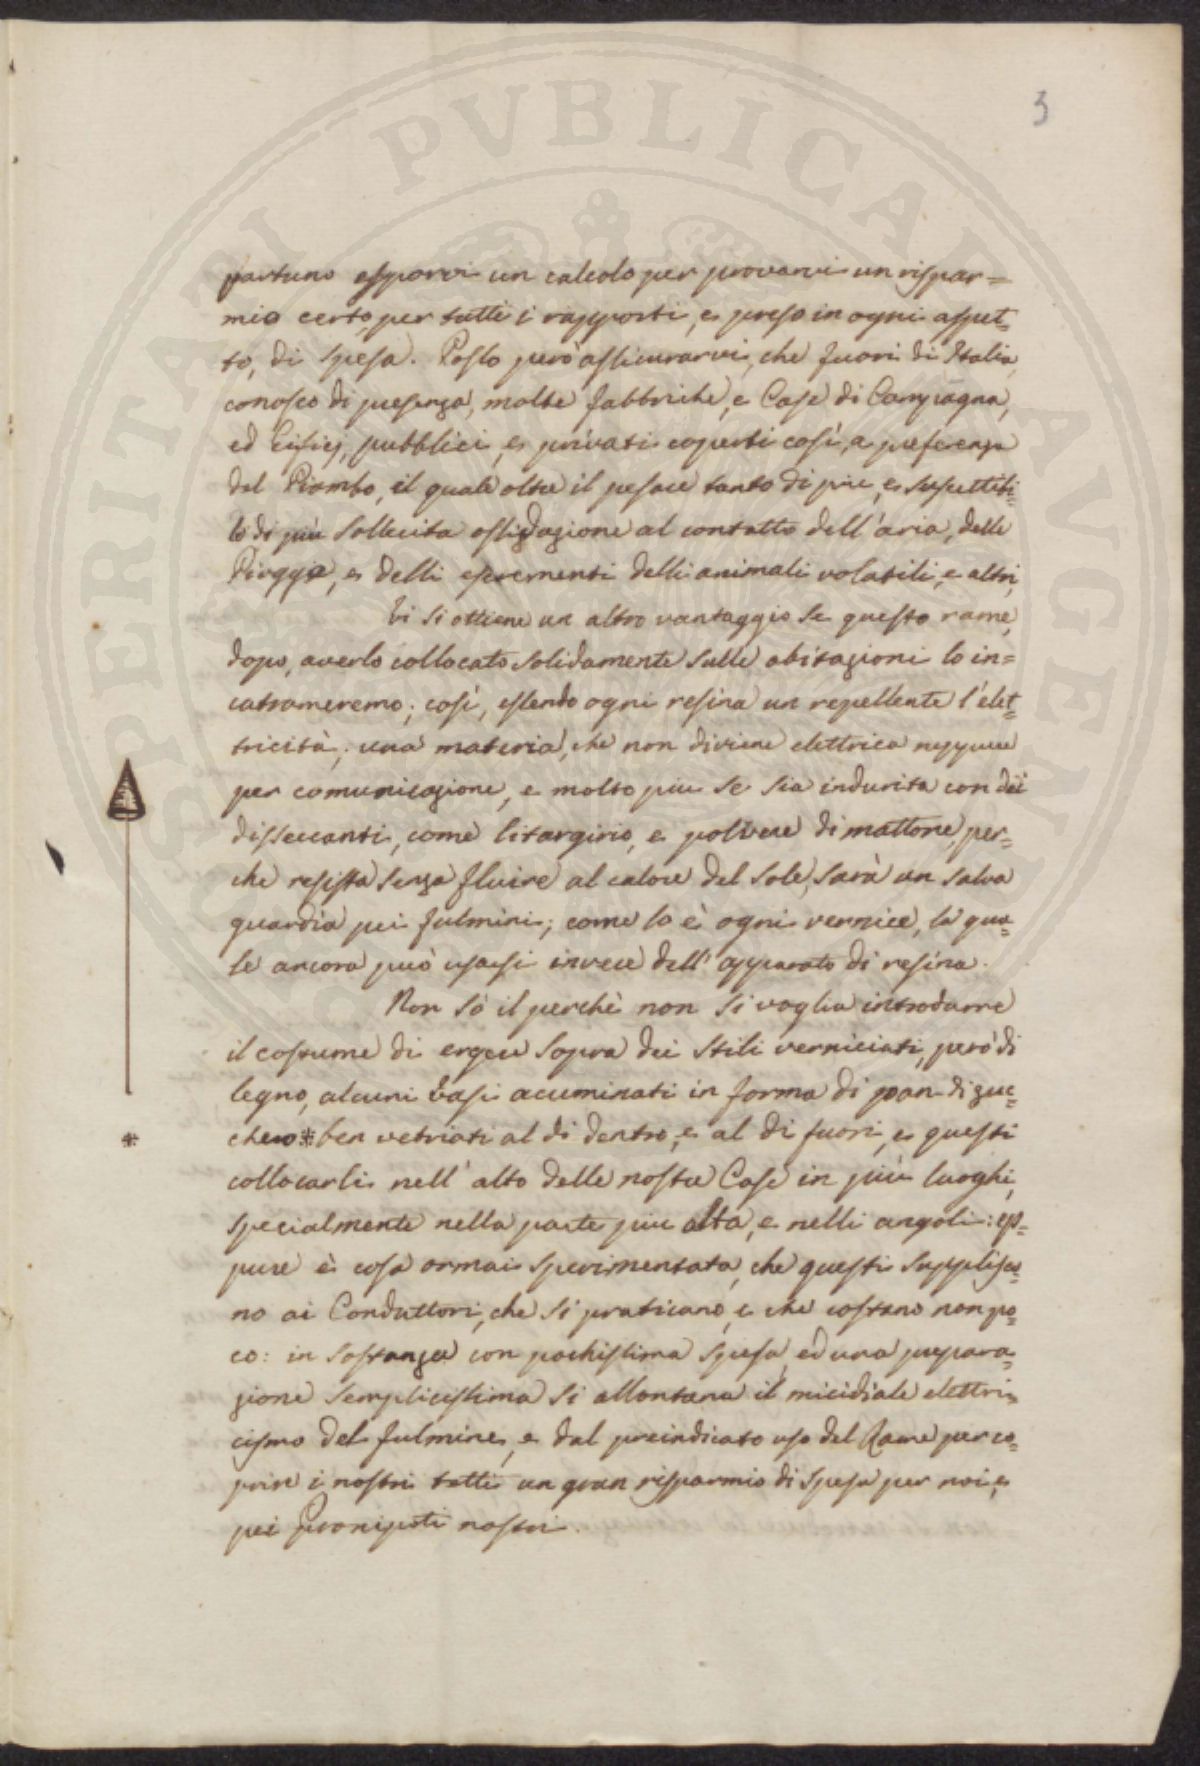 3
portuno esporvi un calcolo per provarvi un rispar=
mio certo, per tutti i rapporti, e preso in ogni aspet=
to, di spesa. Posso però assicurarvi, che fuori di Italia,
conosco di presenza, molte fabbriche, e Case di Campagna,
ed Eifizj, pubblici, e privati coperti così, a preferenza
del Piombo, il quale oltre il pesare tanto di più, e suscettibi=
le di più sollecita ossidazione al contatto dell'aria, delle
Piogge, e delli escrementi delli animali volatili, e altri,
Vi si ottiene un altro vantaggio se questo rame,
dopo, averlo collocato solidamente sulle abitazioni lo in=
catrameremo; così, essendo ogni resina un repellente l'elet=
tricità; una materia, che non diviene elettrica neppure
per comunicazione, e molto più se sia indurita con dei
disseccanti, come litargirio, e polvere di mattone, per=
che resista senza fluire al calore del Sole, sarà un salva
guardia pei fulmini; come lo è ogni vernice, la qua=
le ancora può usarsi invece dell' apparato di resina.
Non sò il perchè non si voglia introdurre
il costume di ergere sopra dei Stili verniciati, però di
legno, alcuni Vasi acuminati in forma di pan-di zuc=
chero * ben vetriati al di dentro, e al di fuori, e questi
*
collocarli nell' alto delle nostre Case in più luoghi,
specialmente nella parte più alta, e nelli angoli: ep=
pure è cosa ormai sperimentata, che questi supplisco=
no ai Conduttori, che si praticano, e che costano non po=
co: in sostanza con pochissima spesa, ed una prepara=
zione semplicissima si allontana il micidiale elettri=
cismo del fulmine, e dal preindicato uso del Rame per co=
prire i nostri tetti un gran risparmio di spesa per noi, e
pei Pronipoti nostri.
SPERITATI PVBLICAE AVGENDAE